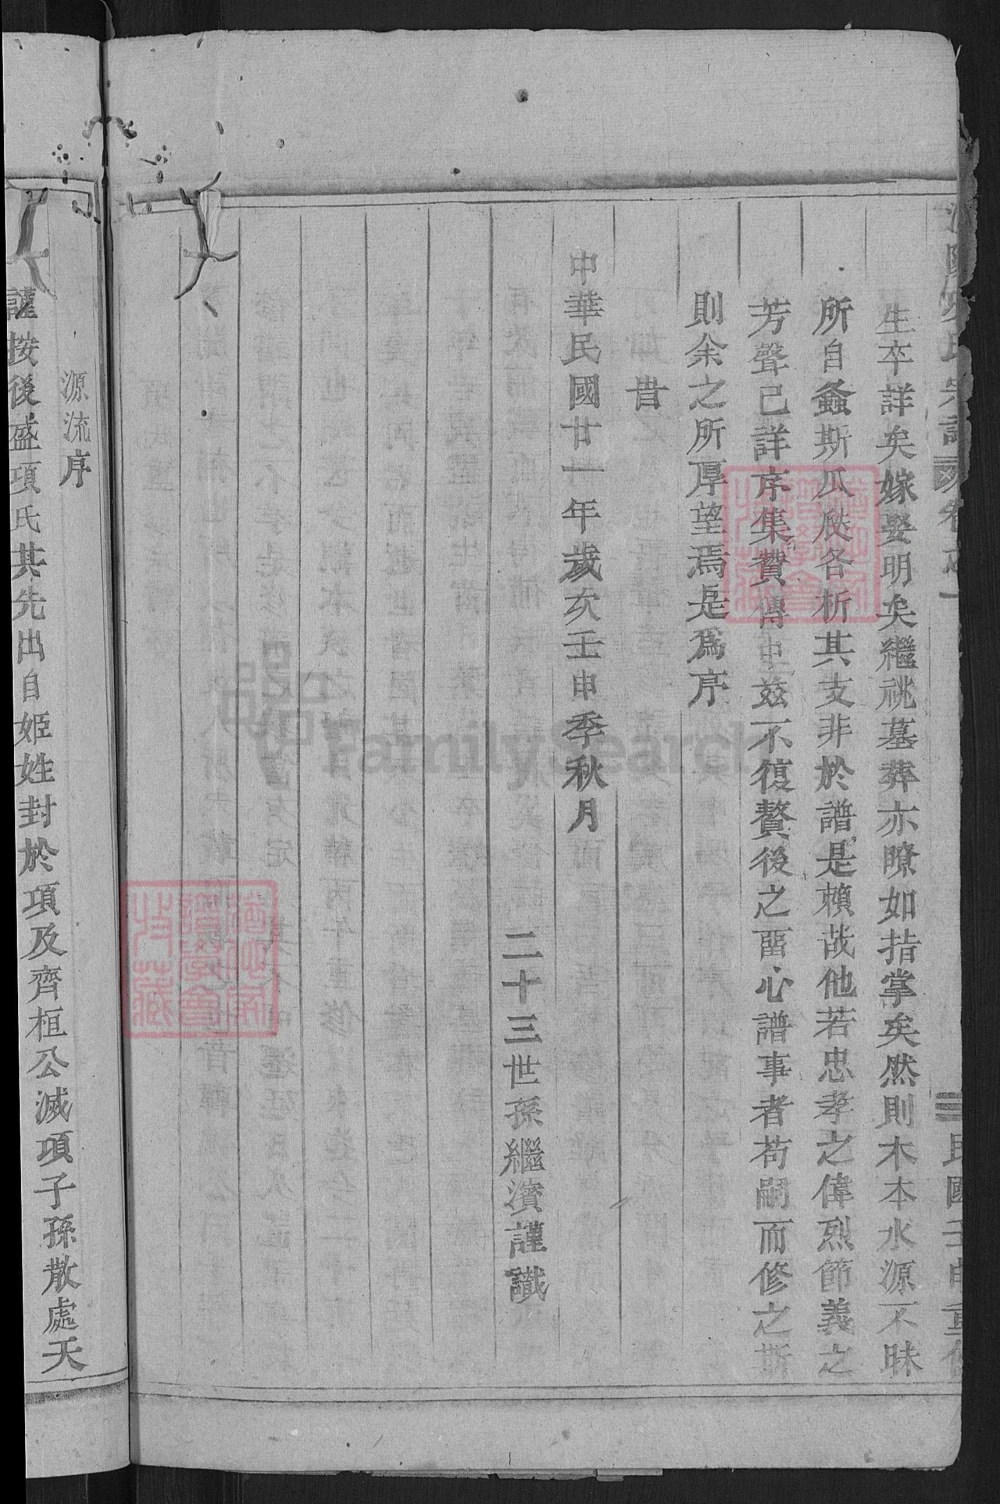 生卒詳矣嫁娶明矣繼祧墓葬亦瞭如指掌矣然則木本水源不昧
所自螽斯瓜瓞各析其支非於譜是賴哉他若忠孝之偉烈節義之
芳聲已詳序集贊傳中茲不復贅後之畱心譜事者苟嗣而修之斯
則余之所厚望焉是爲序
旹
中華民國廿一年歲次壬申季秋月
二十三世孫繼濱謹識
源流序
謹按後盛項氏其先出自姬姓封於項及齊桓公滅項子孫散處天
FamilySearch